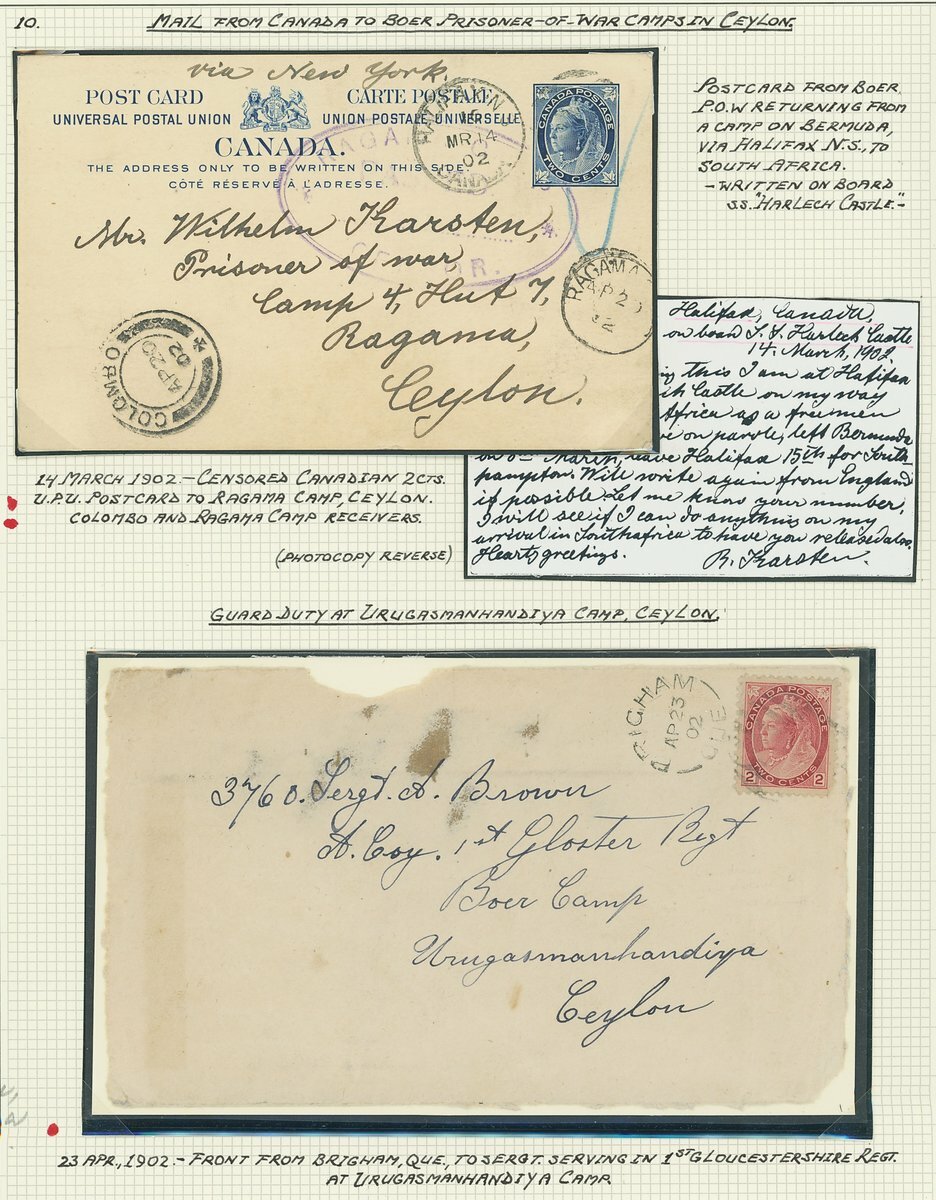 10.
MAIL FROM CANADA TO BOER PRISONER-OF-WAR CAMPS IN CEYLON.
via New York.
POST CARD
CARTE POSTALE
UNIVERSAL POSTAL UNION
UNION POSTALE UNIVERSELLE
CANADA.
THE ADDRESS ONLY TO BE WRITTEN ON THIS SIDE
CÔTÉ RÉSERVÉ À L'ADRESSE.
MR 14
02
CANADA
CANADA POSTAGE
TWO CENTS
RAGA
Mr. Wilhelm Karsten,
Prisoner of war
Camp 4, Hut 7,
Ragama,
Ceylon.
RAGAMA
AP 2
COLOMBO
AP 20
02
POSTCARD FROM BOER
P.O.W RETURNING FROM
A CAMP ON BERMUDA,
VIA HALIFAX N.S., TO
SOUTH AFRICA.
- WRITTEN ON BOARD
S.S. "HARLECH CASTLE."-
Halifax, Canada,
on board S. S. Harlech Castle
14. March, 1902.
this I am at Halifax
Castle on my way
Africa as a freemen
on parole, left Bermuda
leave Halifax 15th for South-
pampton. Will write again from England
if possible. Let me know your number,
I will see if I can do anything on my
arrival in Southafrica to have you released also.
Hearty greetings.
R. Karsten.
14 MARCH 1902.- CENSORED CANADIAN 2CTS.
U.P.U. POSTCARD TO RAGAMA CAMP, CEYLON.
COLOMBO AND RAGAMA CAMP RECEIVERS.
(PHOTOCOPY REVERSE)
GUARD DUTY AT URUGASMANHANDIYA CAMP, CEYLON.
BRIGHAM
AP 23
02
QUE
CANADA POSTAGE
TWO CENTS
2 2
3760. Sergt. A. Brown
A. Coy. 1st Gloster Regt
Boer Camp
Urugasmanhandiya
Ceylon
23 APR., 1902.- FRONT FROM BRIGHAM, QUE., TO SERGT. SERVING IN 1ST GLOUCESTERSHIRE REGT.
AT URUGASMANHANDIYA CAMP.